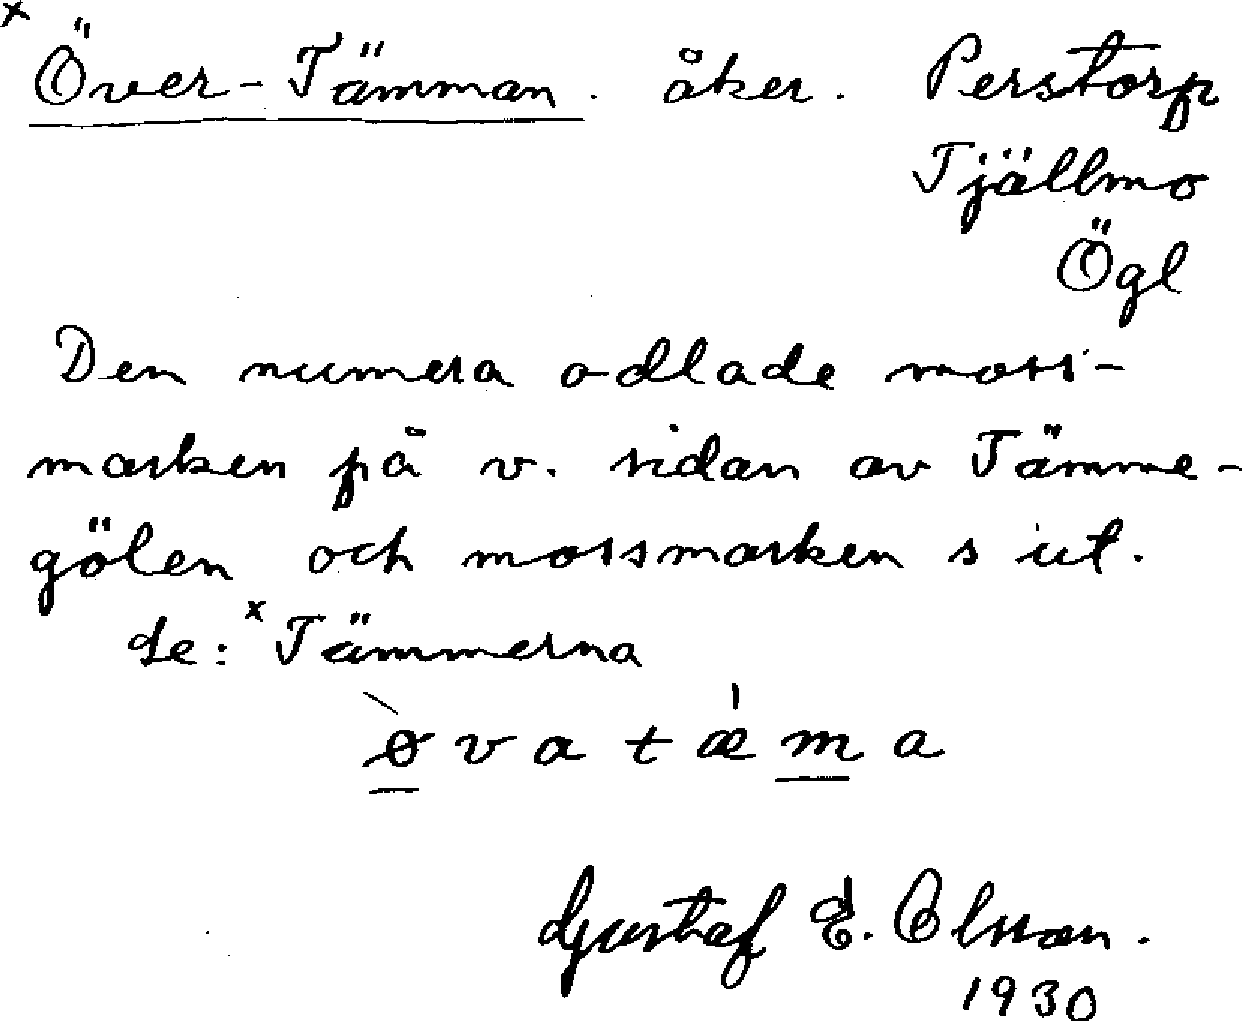 x Över-Tämman. åker. Perstorp
Tjällmo
Ögl
Den numera odlade moss-
marken på v. sidan av Tämme-
gölen och mossmarken s ut.
Se: x Tämmerna
øvatæma
Gustaf E. Olsson.
1930